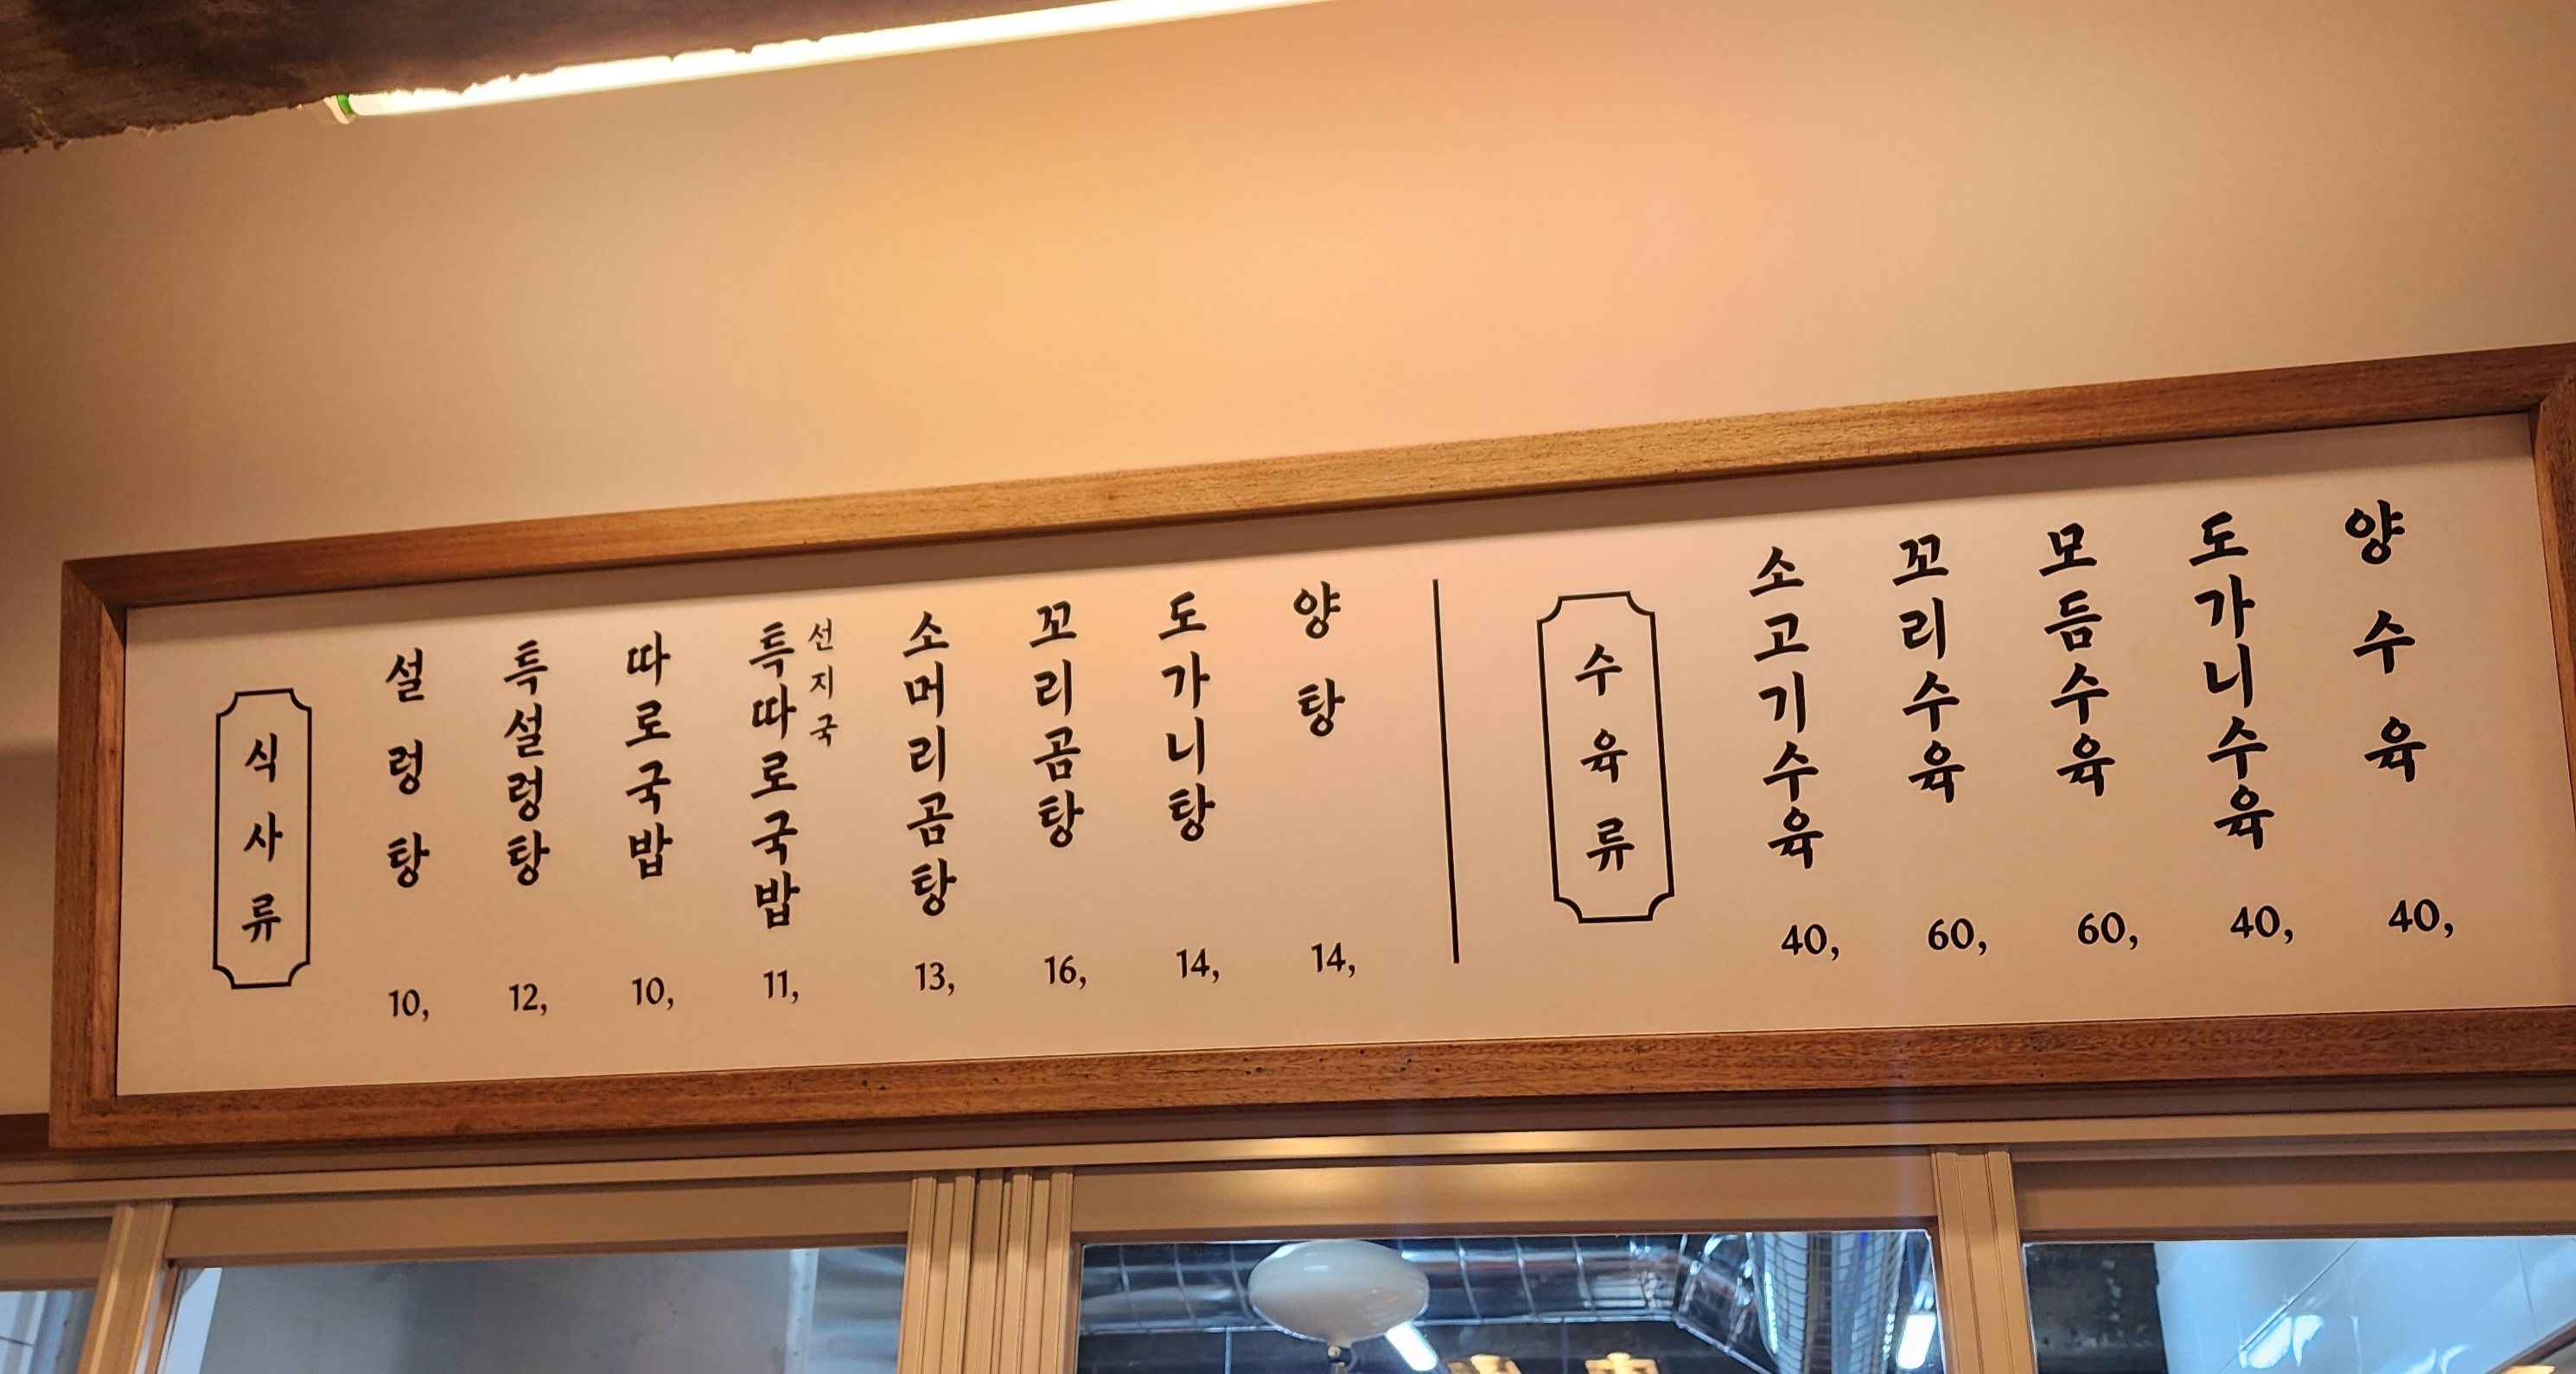 식사류
설렁탕 10,
특설렁탕 12,
따로국밥 10,
특따로국밥 11,
선지국
소머리곰탕 13,
꼬리곰탕 16,
도가니탕 14,
양탕 14,
수육류
소고기수육 40,
꼬리수육 60,
모듬수육 60,
도가니수육 40,
양수육 40,